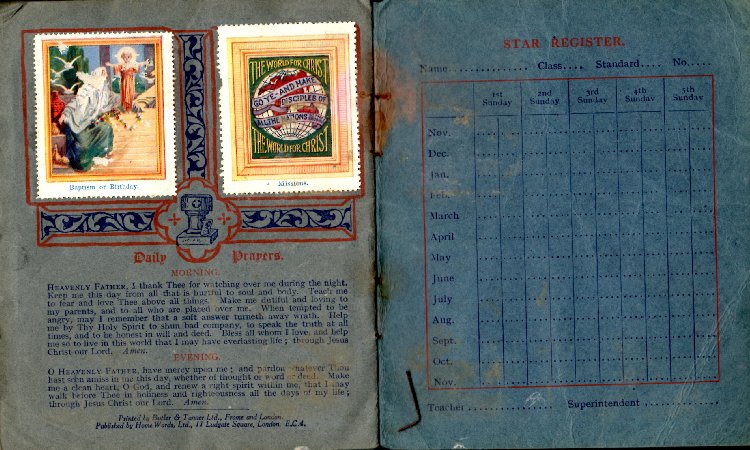 Baptism or Birthday.
THE WORLD FOR CHRIST
GO YE AND MAKE
DISCIPLES OF
ALL THE NATIONS
THE WORLD FOR CHRIST
Missions.
Daily Prayers.
MORNING.
HEAVENLY FATHER, I thank Thee for watching over me during the night.
Keep me this day from all that is hurtful to soul and body. Teach me
to fear and love Thee above all things. Make me dutiful and loving to
my parents, and to all who are placed over me. When tempted to be
angry, may I remember that a soft answer turneth away wrath. Help
me by Thy Holy Spirit to shun bad company, to speak the truth at all
times, and to be honest in will and deed. Bless all whom I love, and help
me so to live in this world that I may have everlasting life; through Jesus
Christ our Lord. Amen.
EVENING.
O HEAVENLY FATHER, have mercy upon me; and pardon whatever Thou
hast seen amiss in me this day, whether of thought or word or deed. Make
me a clean heart, O God, and renew a right spirit within me, that I may
walk before Thee in holiness and righteousness all the days of my life;
through Jesus Christ our Lord. Amen.
Printed by Butler & Tanner Ltd., Frome and London.
Published by Home Words, Ltd., 11 Ludgate Square, London E.C.4.
STAR REGISTER.
Name.............. Class.... Standard.... No.....
1st Sunday 2nd Sunday 3rd Sunday 4th Sunday 5th Sunday
Nov.
Dec.
Jan.
Feb.
March
April
May
June
July
Aug.
Sept.
Oct.
Nov.
Teacher................ Superintendent................